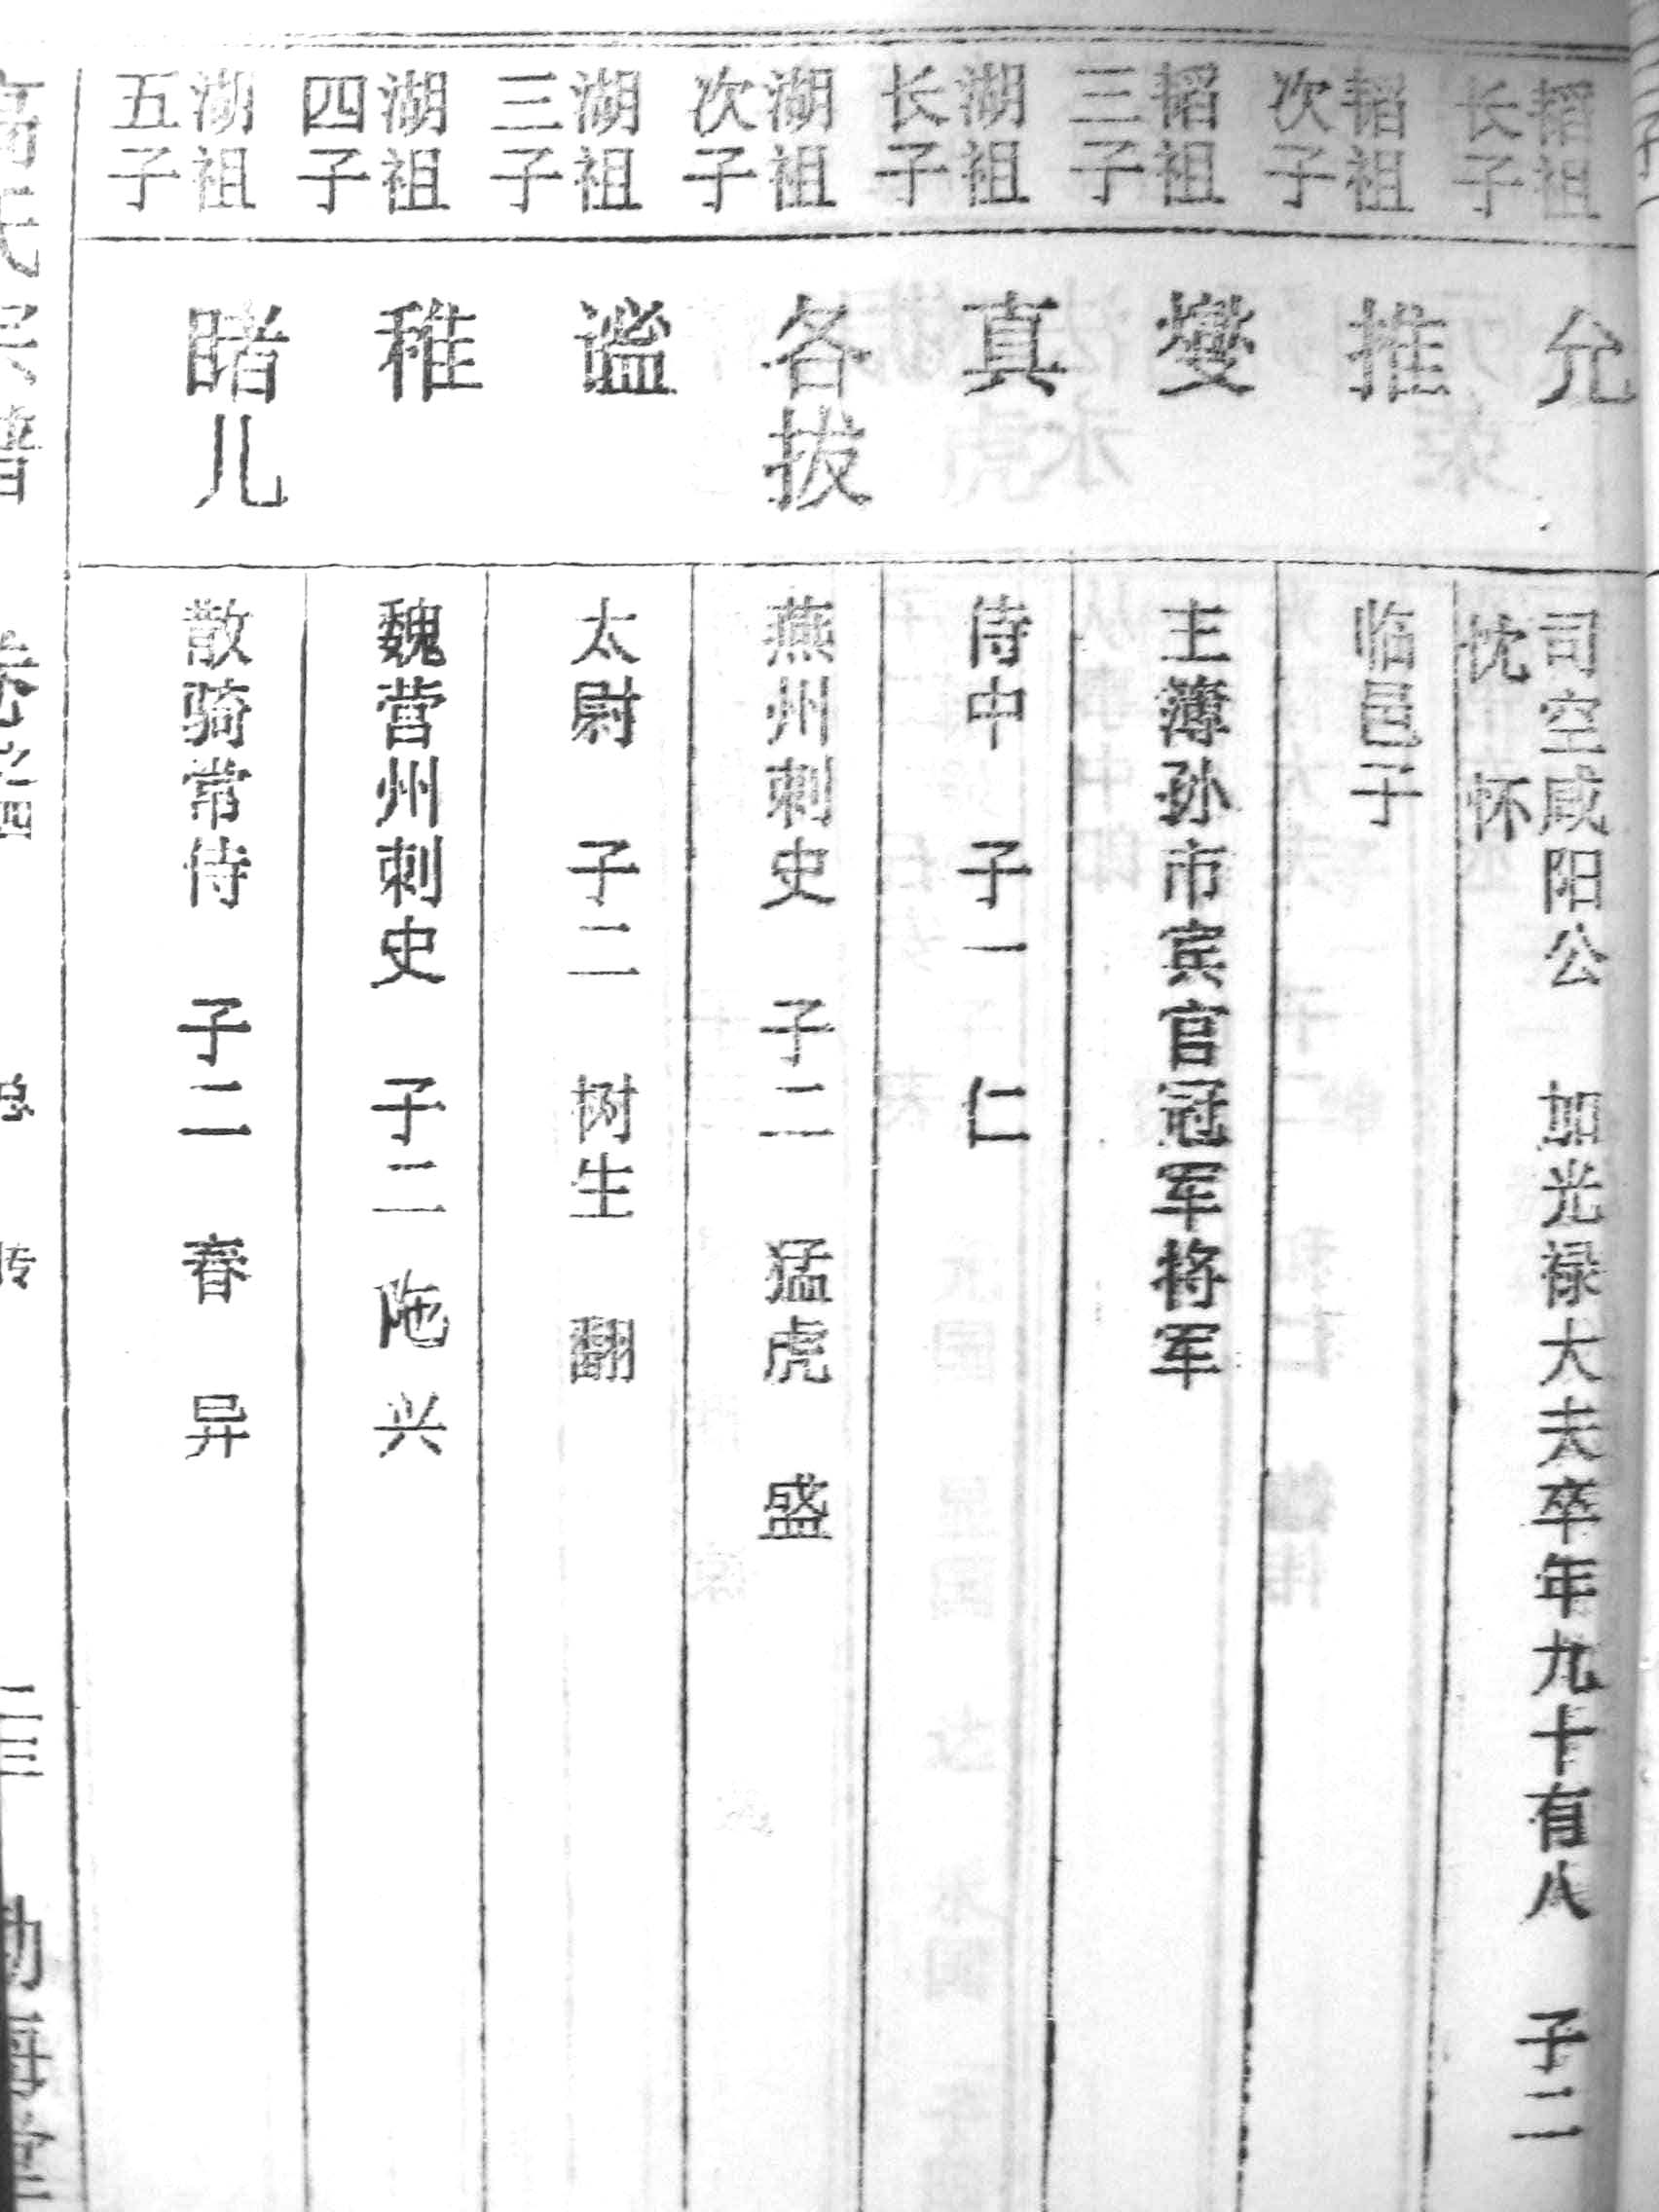 韬祖
长子
允
司空咸阳公 加光禄大夫卒年九十有八 子二
忱 怀
韬祖
次子
推
临邑子
韬祖
三子
燮
主薄孙市宾官冠军将军
湖祖
长子
真
侍中 子一 仁
湖祖
次子
各拔
燕州刺史 子二 猛虎 盛
湖祖
三子
谧
太尉 子二 树生 翻
湖祖
四子
稚
魏营州刺史 子二 陁 兴
湖祖
五子
睹儿
散骑常侍 子二 春 异
高氏宗谱
二三